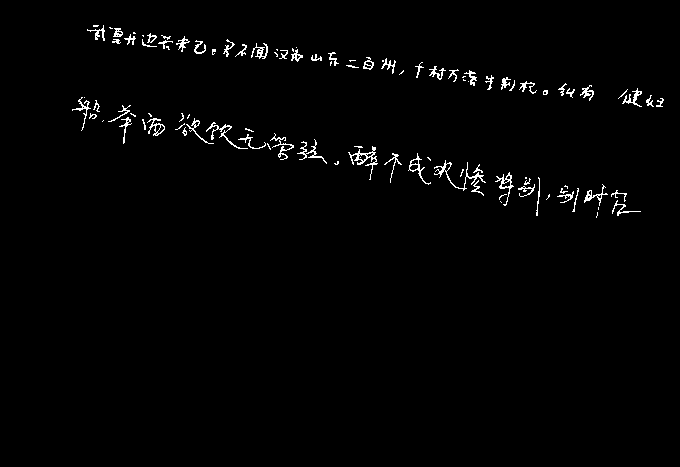 武皇开边意未已。君不闻汉家山东二百州，千村万落生荆杞。纵有 健妇
船举酒欲饮无管弦。醉不成欢惨将别，别时茫